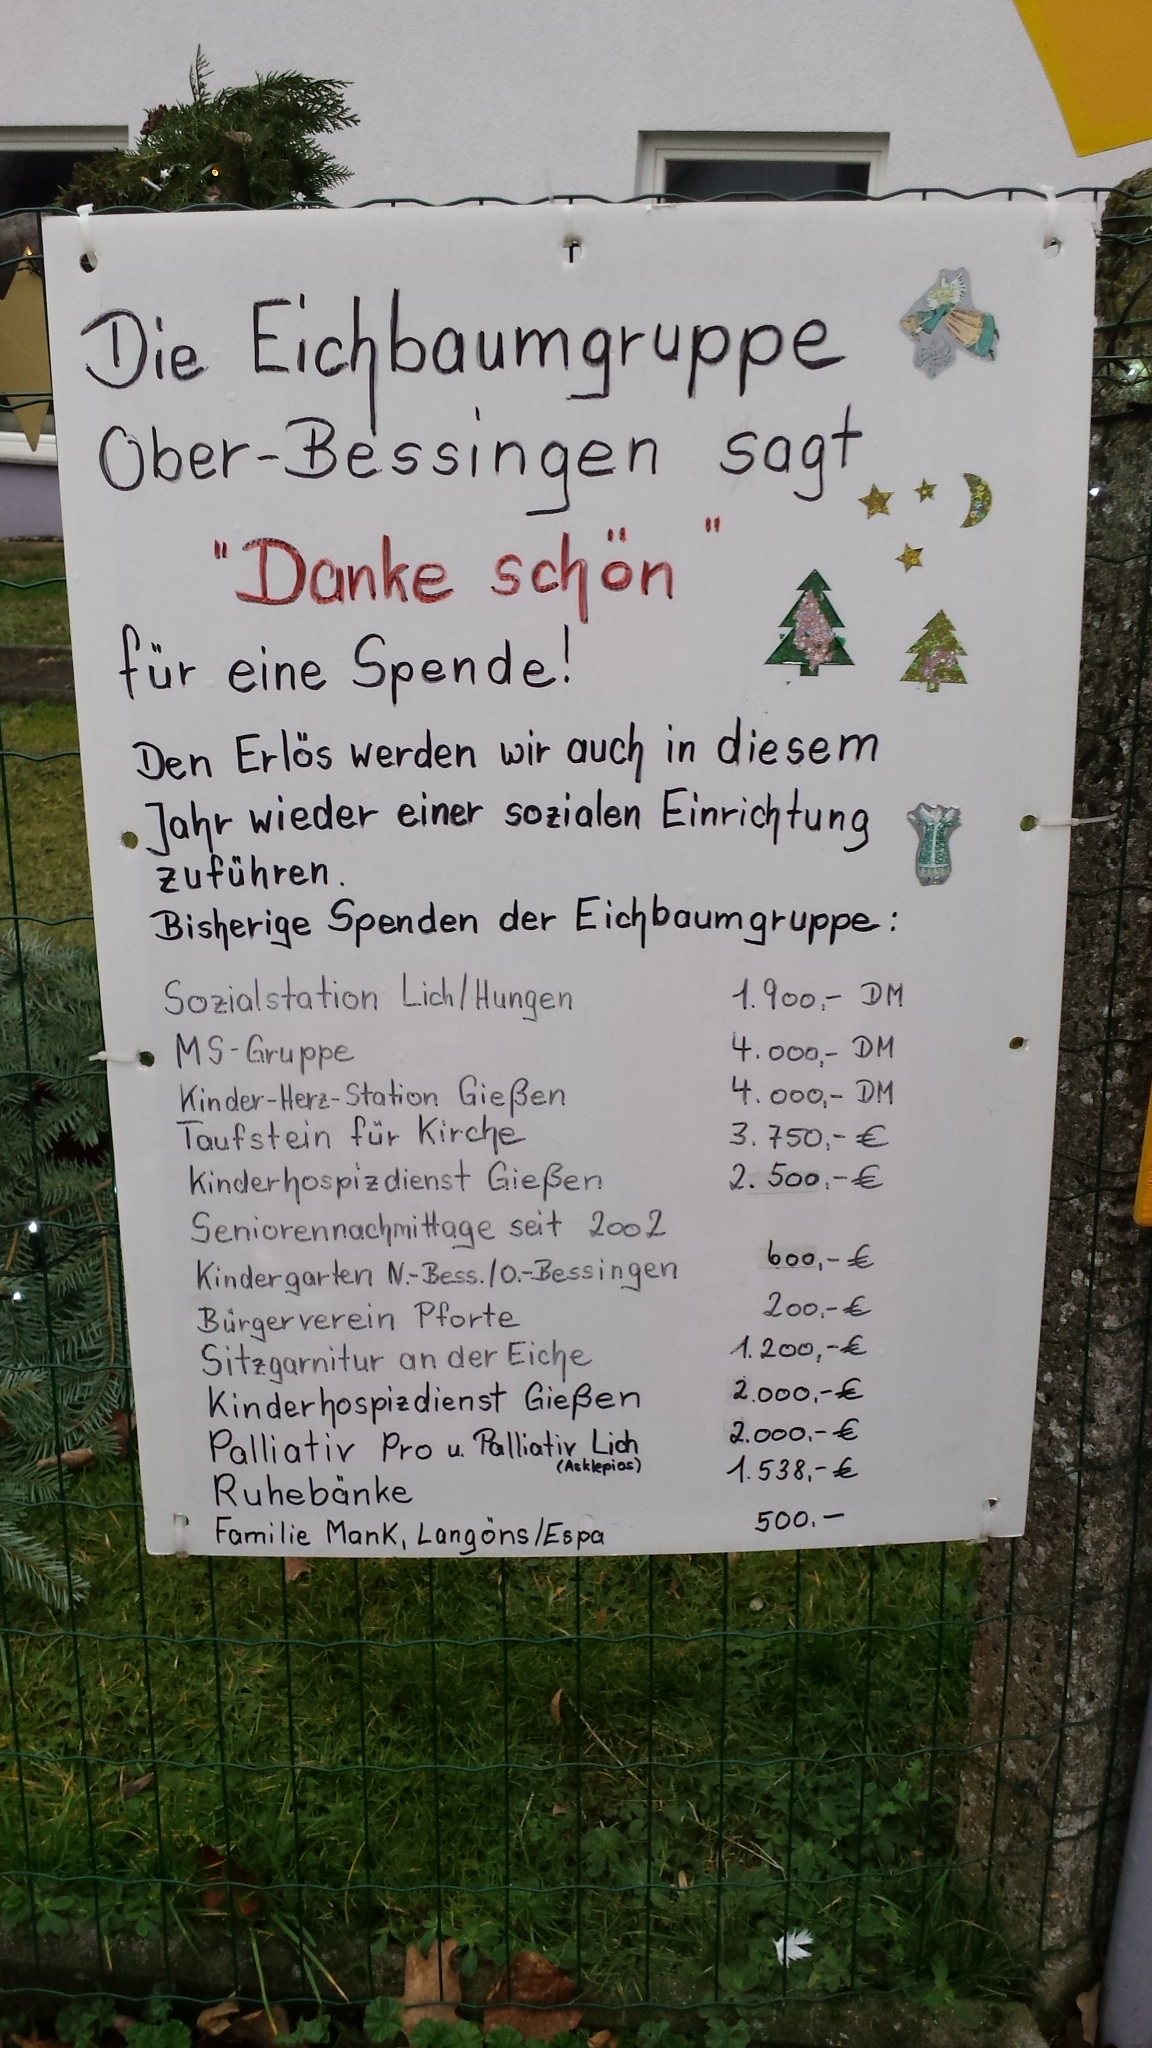 Die Eichbaumgruppe
Ober-Bessingen sagt
"Danke schön"
für eine Spende!
Den Erlös werden wir auch in diesem
Jahr wieder einer sozialen Einrichtung
zuführen.
Bisherige Spenden der Eichbaumgruppe:
Sozialstation Lich/Hungen 1.900,- DM
MS-Gruppe 4.000,- DM
Kinder-Herz-Station Gießen 4.000,- DM
Taufstein für Kirche 3.750,- €
Kinderhospizdienst Gießen 2.500,- €
Seniorennachmittage seit 2002
Kindergarten N.-Bess./O.-Bessingen 600,- €
Bürgerverein Pforte 200,- €
Sitzgarnitur an der Eiche 1.200,- €
Kinderhospizdienst Gießen 2.000,- €
Palliativ Pro u. Palliativ Lich 2.000,- €
(Asklepios)
Ruhebänke 1.538,- €
Familie Mank, Langöns/Espa 500.-